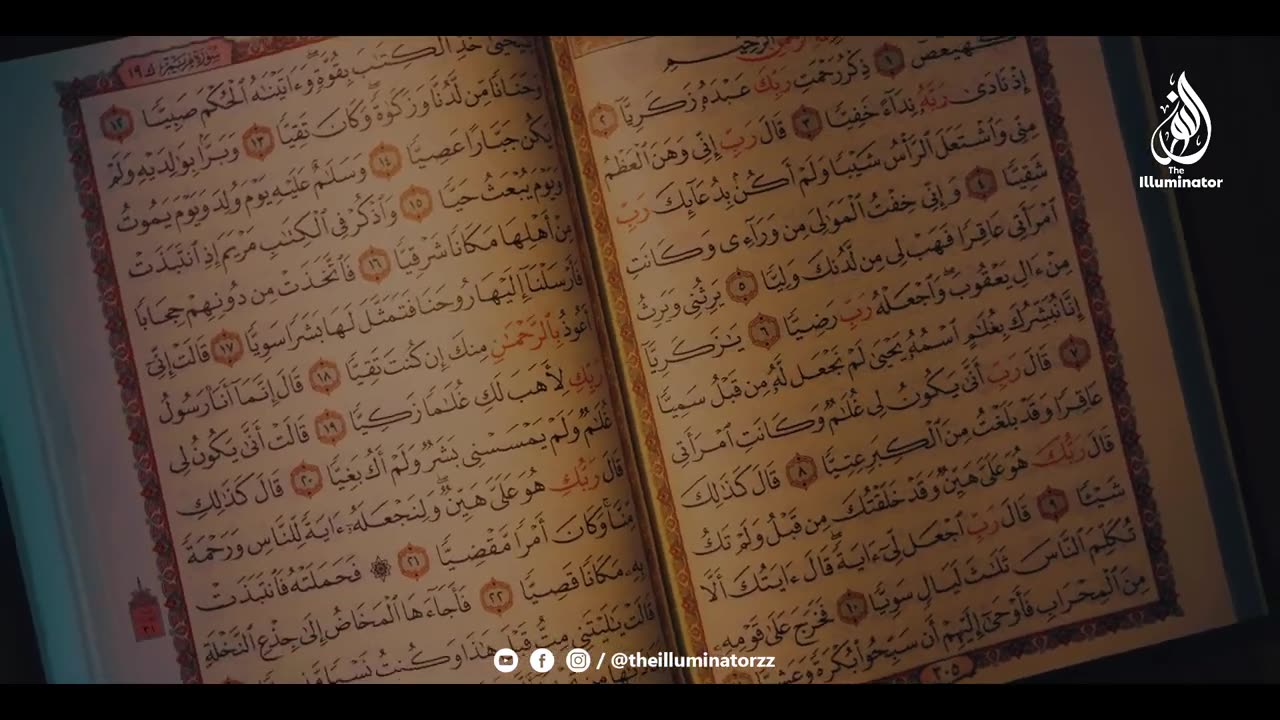 كهيعص ١ ذِكْرُ رَحْمَتِ رَبِّكَ عَبْدَهُ زَكَرِيَّا ٢
إِذْ نَادَىٰ رَبَّهُ نِدَآءً خَفِيًّا ٣ قَالَ رَبِّ إِنِّى وَهَنَ ٱلْعَظْمُ
مِنِّى وَٱشْتَعَلَ ٱلرَّأْسُ شَيْبًا وَلَمْ أَكُنۢ بِدُعَآئِكَ رَبِّ
شَقِيًّا ٤ وَإِنِّى خِفْتُ ٱلْمَوَٰلِىَ مِن وَرَآءِى وَكَانَتِ
ٱمْرَأَتِى عَاقِرًا فَهَبْ لِى مِن لَّدُنكَ وَلِيًّا ٥ يَرِثُنِى وَيَرِثُ
مِنْ ءَالِ يَعْقُوبَ ۖ وَٱجْعَلْهُ رَبِّ رَضِيًّا ٦ يَٰزَكَرِيَّآ
إِنَّا نُبَشِّرُكَ بِغُلَٰمٍ ٱسْمُهُۥ يَحْيَىٰ لَمْ نَجْعَل لَّهُۥ مِن قَبْلُ سَمِيًّا
٧ قَالَ رَبِّ أَنَّىٰ يَكُونُ لِى غُلَٰمٌ وَكَانَتِ ٱمْرَأَتِى
عَاقِرًا وَقَدْ بَلَغْتُ مِنَ ٱلْكِبَرِ عِتِيًّا ٨ قَالَ كَذَٰلِكَ
قَالَ رَبُّكَ هُوَ عَلَىَّ هَيِّنٌ وَقَدْ خَلَقْتُكَ مِن قَبْلُ وَلَمْ تَكُ
شَيْـًٔا ٩ قَالَ رَبِّ ٱجْعَل لِّىٓ ءَايَةً ۚ قَالَ ءَايَتُكَ أَلَّا
تُكَلِّمَ ٱلنَّاسَ ثَلَٰثَ لَيَالٍ سَوِيًّا ١٠ فَخَرَجَ عَلَىٰ قَوْمِهِۦ
مِنَ ٱلْمِحْرَابِ فَأَوْحَىٰٓ إِلَيْهِمْ أَن سَبِّحُوا۟ بُكْرَةً وَعَشِيًّا
٣٠٥
سُورَةُ مَرْيَمَ ١٩
يَٰيَحْيَىٰ خُذِ ٱلْكِتَٰبَ بِقُوَّةٍ ۖ وَءَاتَيْنَٰهُ ٱلْحُكْمَ صَبِيًّا ١٢
وَحَنَانًا مِّن لَّدُنَّا وَزَكَوٰةً ۖ وَكَانَ تَقِيًّا ١٣ وَبَرًّۢا بِوَٰلِدَيْهِ وَلَمْ
يَكُن جَبَّارًا عَصِيًّا ١٤ وَسَلَٰمٌ عَلَيْهِ يَوْمَ وُلِدَ وَيَوْمَ يَمُوتُ
وَيَوْمَ يُبْعَثُ حَيًّا ١٥ وَٱذْكُرْ فِى ٱلْكِتَٰبِ مَرْيَمَ إِذِ ٱنتَبَذَتْ
مِنْ أَهْلِهَا مَكَانًا شَرْقِيًّا ١٦ فَٱتَّخَذَتْ مِن دُونِهِمْ حِجَابًا
فَأَرْسَلْنَآ إِلَيْهَا رُوحَنَا فَتَمَثَّلَ لَهَا بَشَرًا سَوِيًّا ١٧ قَالَتْ إِنِّىٓ
أَعُوذُ بِٱلرَّحْمَٰنِ مِنكَ إِن كُنتَ تَقِيًّا ١٨ قَالَ إِنَّمَآ أَنَا۠ رَسُولُ
رَبِّكِ لِأَهَبَ لَكِ غُلَٰمًا زَكِيًّا ١٩ قَالَتْ أَنَّىٰ يَكُونُ لِى
غُلَٰمٌ وَلَمْ يَمْسَسْنِى بَشَرٌ وَلَمْ أَكُ بَغِيًّا ٢٠ قَالَ كَذَٰلِكِ
قَالَ رَبُّكِ هُوَ عَلَىَّ هَيِّنٌ ۖ وَلِنَجْعَلَهُۥٓ ءَايَةً لِّلنَّاسِ وَرَحْمَةً
مِّنَّا ۚ وَكَانَ أَمْرًا مَّقْضِيًّا ٢١ ۞ فَحَمَلَتْهُ فَٱنتَبَذَتْ
بِهِۦ مَكَانًا قَصِيًّا ٢٢ فَأَجَآءَهَا ٱلْمَخَاضُ إِلَىٰ جِذْعِ ٱلنَّخْلَةِ
قَالَتْ يَٰلَيْتَنِى مِتُّ قَبْلَ هَٰذَا وَكُنتُ نَسْيًا
The
Illuminator
/ @theilluminatorzz